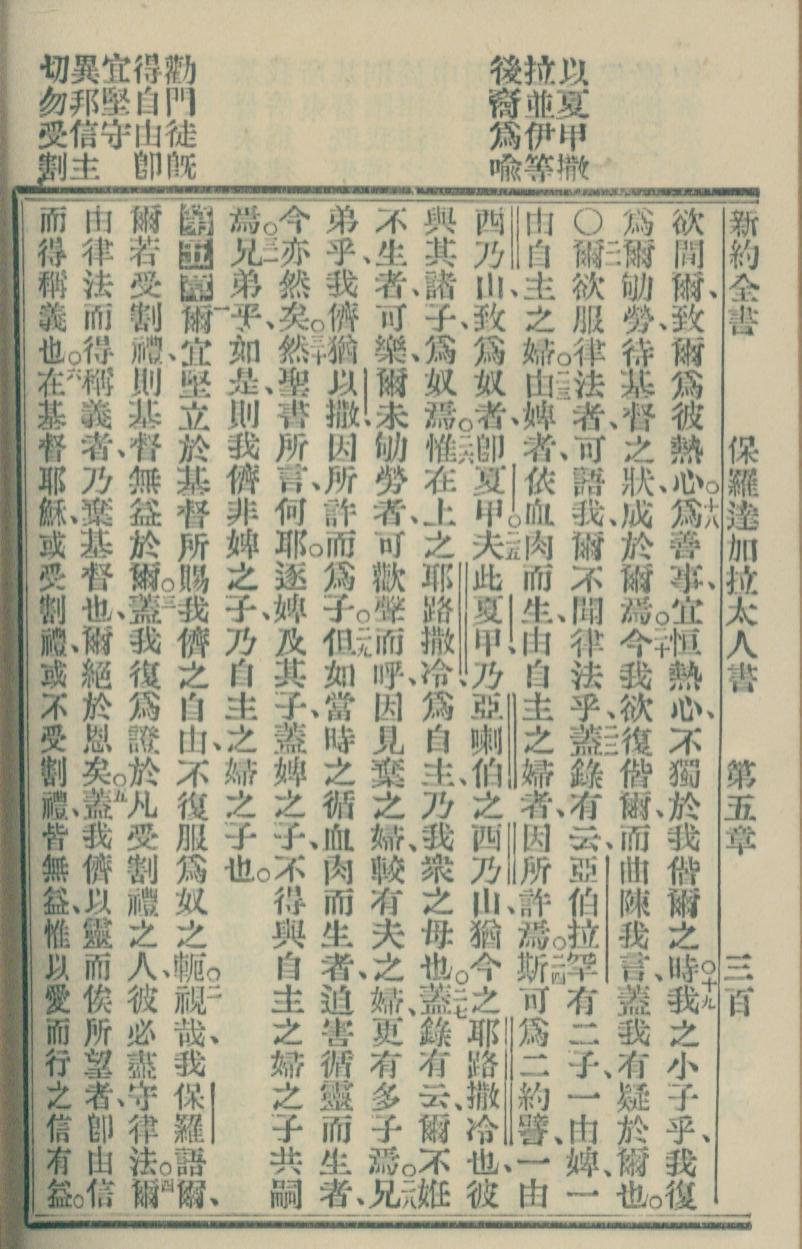 以夏甲撒
拉並伊等
後裔爲喩
勸門徒旣
得自由卽
宜堅守
異邦信主
切勿受割
新約全書 保羅達加拉太人書 第五章 三百
欲間爾、致爾爲彼熱心。十八爲善事、宜恒熱心、不獨於我偕爾之時。十九我之小子乎、我復
爲爾劬勞、待基督之狀、成於爾焉。二十今我欲復偕爾、而曲陳我言、蓋我有疑於爾也。
二一〇爾欲服律法者、可語我、爾不聞律法乎、二二蓋錄有云、亞伯拉罕有二子、一由婢、一
由自主之婦。二三由婢者、依血肉而生、由自主之婦者、因所許焉。二四斯可爲二約譬、一由
西乃山、致爲奴者、卽夏甲。二五夫此夏甲、乃亞喇伯之西乃山、猶今之耶路撒冷也、彼
與其諸子、爲奴焉。二六惟在上之耶路撒冷、爲自主、乃我衆之母也。二七蓋錄有云、爾不姙
不生者、可樂、爾未劬勞者、可歡聲而呼、因見棄之婦、較有夫之婦、更有多子焉。二八兄
弟乎、我儕猶以撒、因所許而爲子。二九但如當時之循血肉而生者、迫害循靈而生者、
今亦然矣。三十然聖書所言、何耶。逐婢及其子、蓋婢之子、不得與自主之婦之子共嗣
焉。三一兄弟乎、如是、則我儕非婢之子、乃自主之婦之子也。
第五章一爾宜堅立於基督所賜我儕之自由、不復服爲奴之軛。二視哉、我保羅語爾、
爾若受割禮、則基督無益於爾。三蓋我復爲證於凡受割禮之人、彼必盡守律法。四爾
由律法而得稱義者、乃棄基督也、爾絕於恩矣。五蓋我儕以靈而俟所望者、卽由信
而得稱義也。六在基督耶穌、或受割禮、或不受割禮、皆無益、惟以愛而行之信有益。